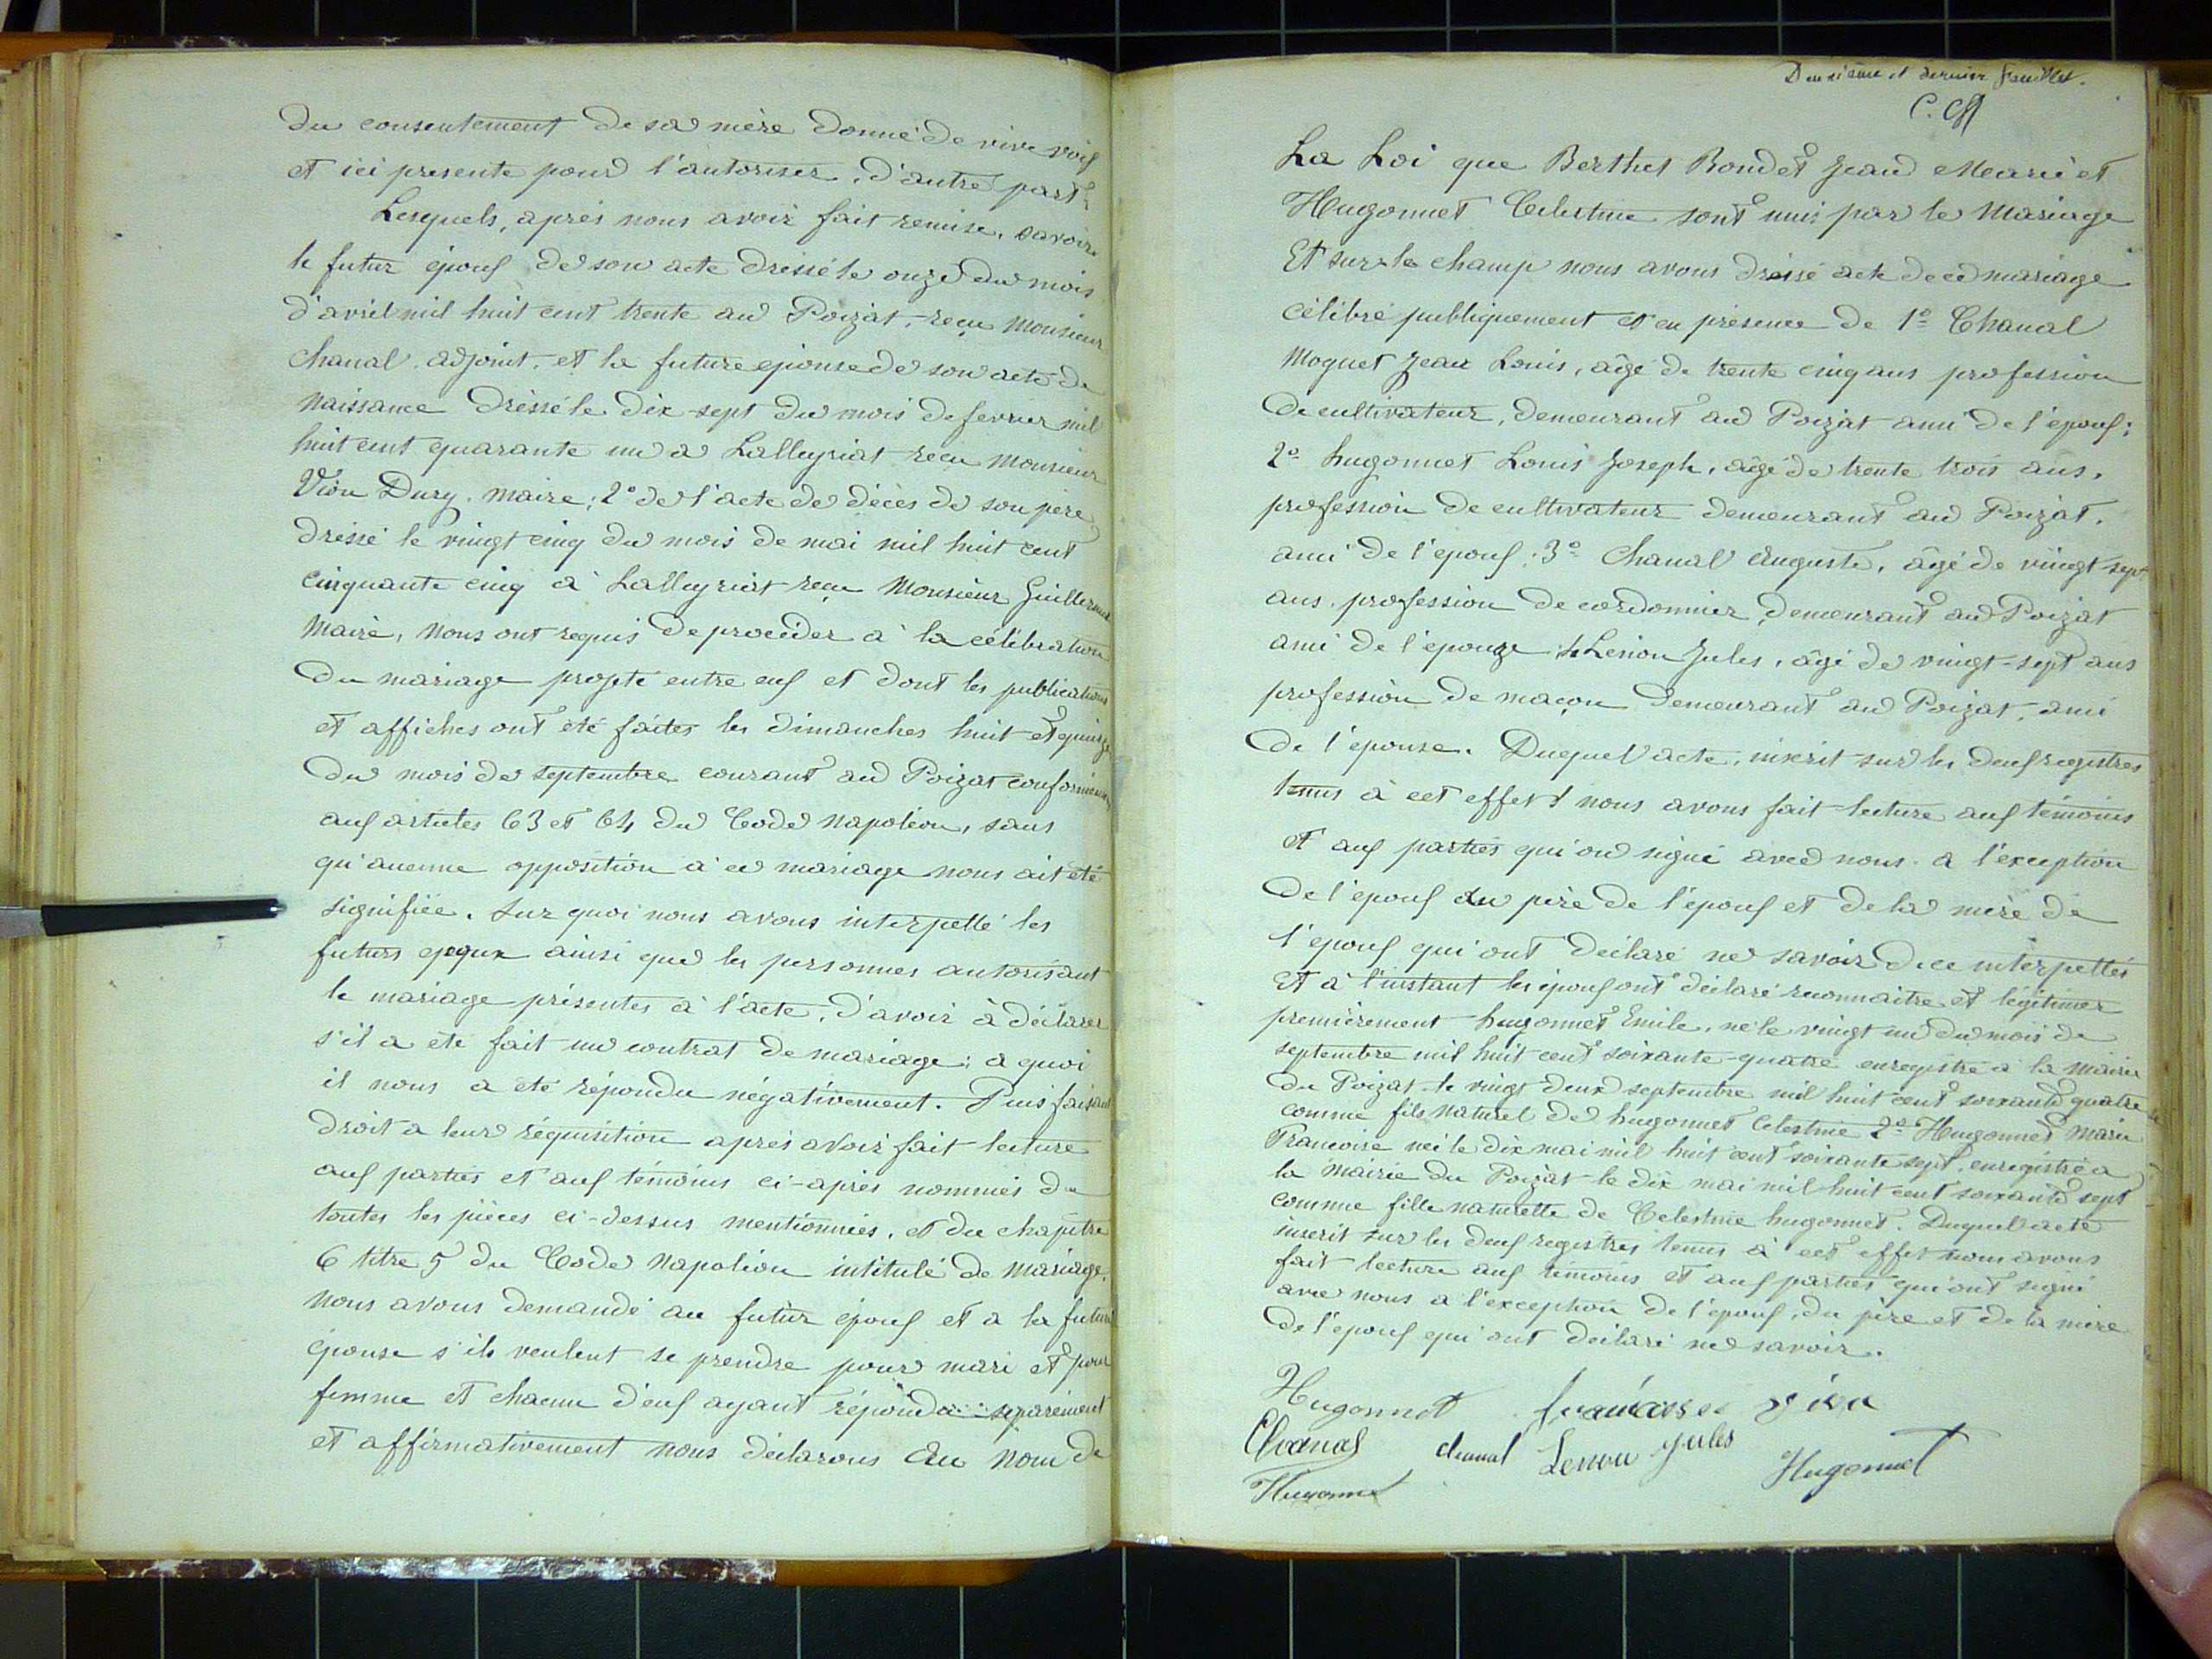 du consentement de sa mère donné de vive voix
et ici presente pour l'autoriser, d'autre part;
Lesquels, après nous avoir fait remise, savoir
le futur époux de son acte dressé le onze du mois
d'avril mil huit cent trente au Poizat, reçu Monsieur
Chanal adjoint, et la future epouse de son acte de
naissance dressé le dix-sept du mois de fevrier mil
huit cent quarante un a Lalleyriat reçu Monsieur
Vion Dury, maire; 2° de l'acte de décès de son père
dressé le vingt cinq du mois de mai mil huit cent
cinquante cinq à Lalleyriat reçu Monsieur Guillermet
Maire, nous ont requis de procéder à la célébration
du mariage projeté entre eux et dont les publications
et affiches ont été faites les dimanches huit et quinze
du mois de septembre courant au Poizat conformément
aux articles 63 et 64 du Code Napoléon, sans
qu'aucune opposition à ce mariage nous ait été
signifiée. Sur quoi nous avons interpellé les
futurs epoux ainsi que les personnes autorisant
le mariage présentes à l'acte, d'avoir à déclarer
s'il a été fait un contrat de mariage; a quoi
il nous a été répondu négativement. Puis faisant
droit a leur réquisition après avoir fait lecture
aux parties et aux témoins ci-après nommés de
toutes les pièces ci-dessus mentionnées, et du chapitre
6 titre 5 du Code Napoléon intitulé de Mariage,
nous avons demandé au futur époux et a la future
épouse s'ils veulent se prendre pour mari et pour
femme et chacun d'eux ayant répondu séparément
et affirmativement nous déclarons au nom de
Deuxième et dernier feuillet.
La Loi que Berthet Bondet Jean Marie et
Hugonnet Celestine sont unis par le Mariage
Et sur le champ nous avons dressé acte de ce mariage
célébré publiquement et en présence de 1° Chanal
Moquet Jean Louis, âgé de trente cinq ans profession
de cultivateur, demeurant au Poizat ami de l'époux;
2° hugonnet Louis Joseph, âgé de trente trois ans,
profession de cultivateur demeurant au Poizat,
ami de l'époux; 3° Chanal Auguste, âgé de vingt-sept
ans, profession de cordonnier, demeurant au Poizat
ami de l'épouze; 4 Lenon Jules, âgé de vingt-sept ans
profession de maçon demeurant au Poizat, ami
de l'épouse. Duquel acte, inscrit sur les deux registres
tenus à cet effet nous avons fait lecture aux témoins
et aux parties qui on signé avec nous a l'exception
de l'époux du père de l'époux et de la mère de
l'époux qui ont déclaré ne savoir de ce interpellés
Et à l'instant les époux ont déclaré reconnaitre et légitimer
premièrement hugonnet Emile, né le vingt un du mois de
septembre mil huit cent soixante-quatre enregistré a la mairie
du Poizat le vingt deux septembre mil huit cent soixante quatre
comme fils naturel de hugonnet Celestine 2° Hugonnet Marie
Francoise née le dix mai mil huit cent soixante sept, enregistrée a
la mairie du Poizat le dix mai mil huit cent soixante sept
comme fille naturelle de Celestine hugonnet. Duquel acte
inscrit sur les deux registres tenus à cet effet nous avons
fait lecture aux témoins et aux parties qui ont signé
avec nous a l'exception de l'époux, du père et de la mère
de l'époux qui ont déclaré ne savoir.
Hugonnet francoise vion
Chanal chanal Lenon Jules Hugonnet
Hugonnet